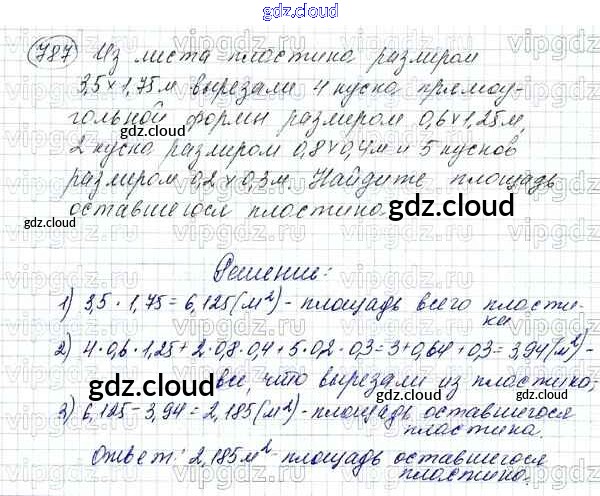 gdz.cloud
787 Из листа пластика размером
3,5×1,75м вырезали 4 куска прямоу-
гольной формы размером 0,6×1,25м,
2 куска размером 0,8×0,4м и 5 кусков
размером 0,2×0,3м. Найдите площадь
оставшегося пластика.
Решение:
1) 3,5 · 1,75 = 6,125 (м²) - площадь всего пласти-
ка
2) 4·0,6·1,25+2·0,8·0,4+5·0,2·0,3=3+0,64+0,3=3,94(м²)-
все, что вырезали из пластика;
3) 6,125-3,94=2,185(м²)-площадь оставшегося
пластика.
Ответ: 2,185м²-площадь оставшегося
пластика.
gdz.cloud